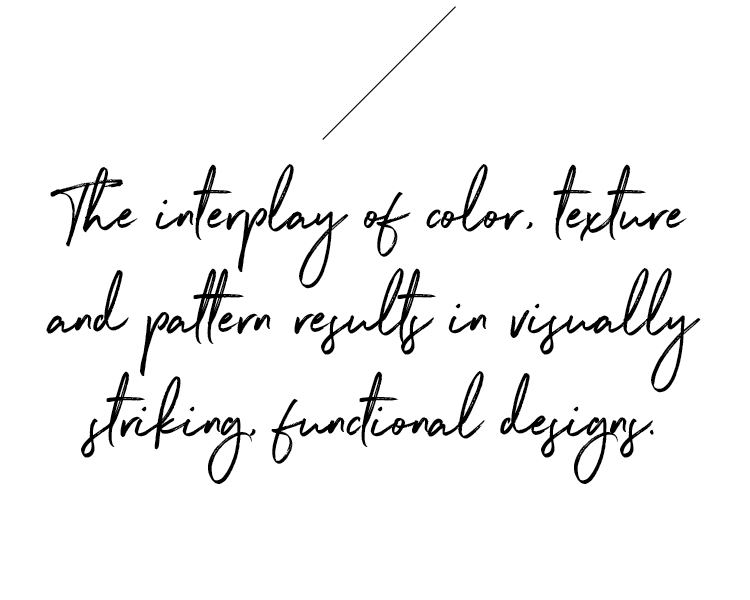 The interplay of color, texture
and pattern results in visually
striking, functional designs.